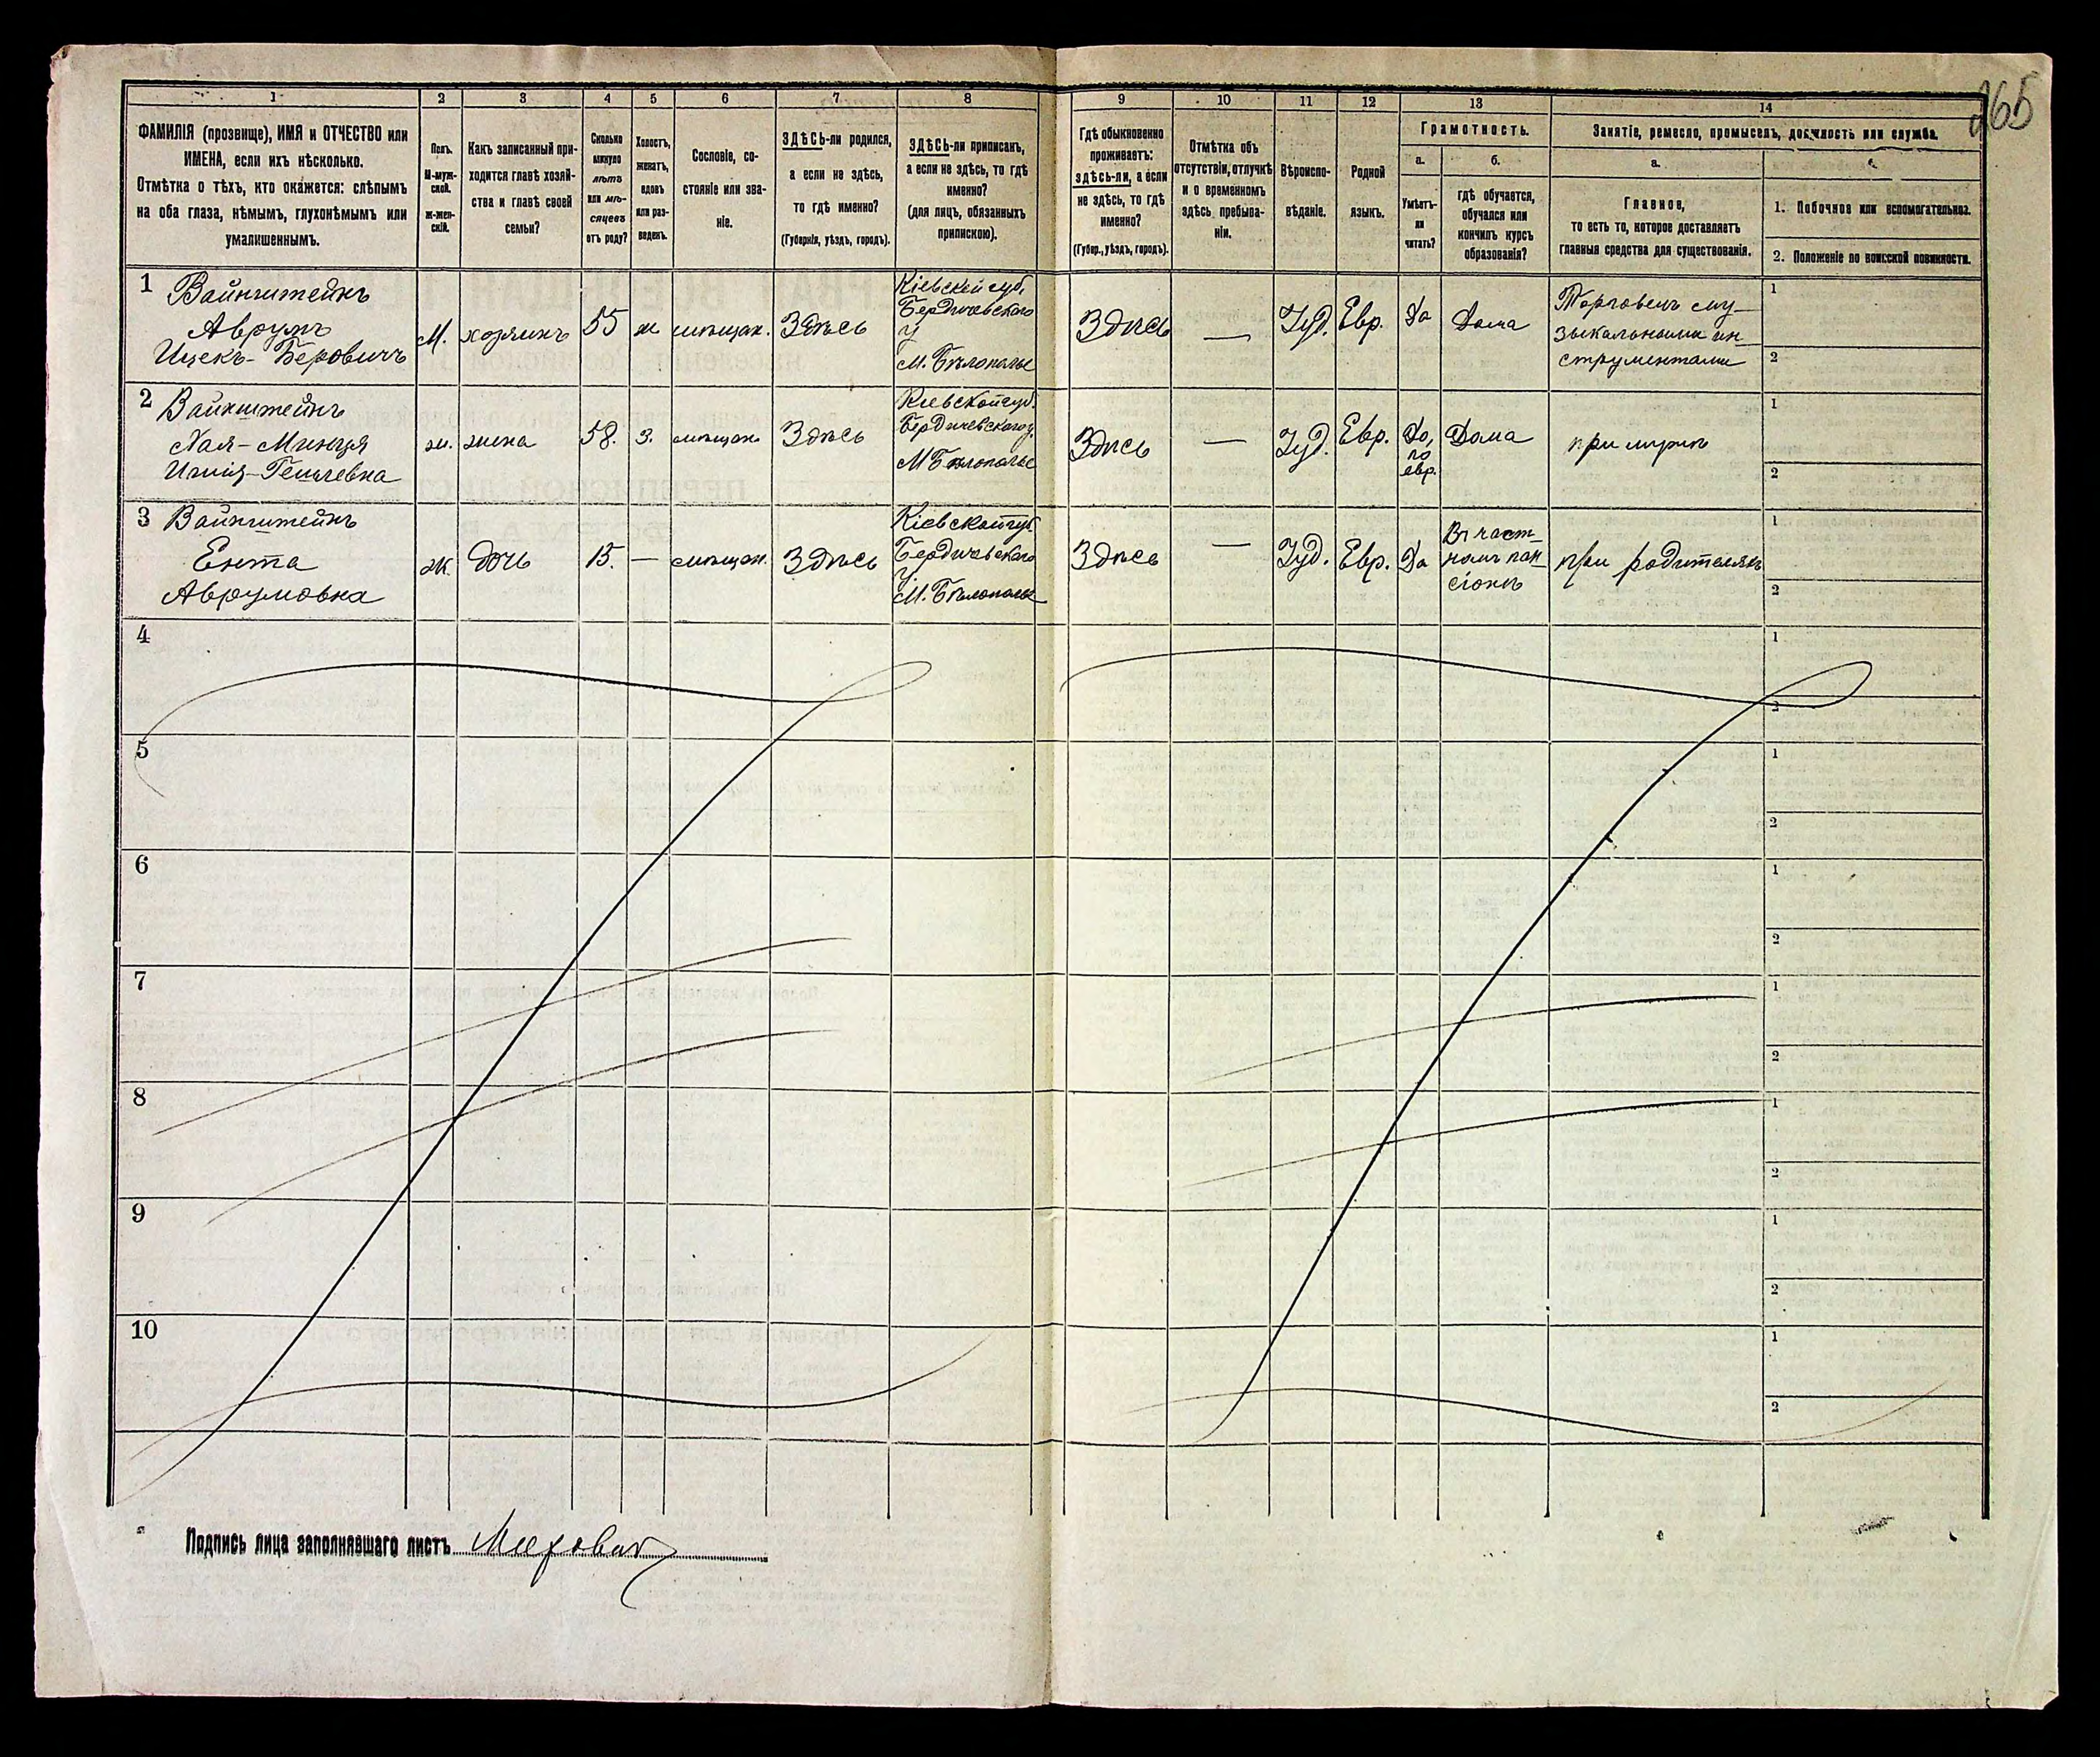 265
1 2 3 4 5 6 7 8 9 10 11 12 13 14
ФАМИЛІЯ (прозвище), ИМЯ и ОТЧЕСТВО или
ИМЕНА, если ихъ нѣсколько.
Отмѣтка о тѣхъ, кто окажется: слѣпымъ
на оба глаза, нѣмымъ, глухонѣмымъ или
умалишеннымъ.
Полъ.
М-муж-
ской.
ж-жен-
скій.
Какъ записанный при-
ходится главѣ хозяй-
ства и главѣ своей
семьи?
Сколько
минуло
лѣтъ
или мѣ-
сяцевъ
отъ роду?
Холостъ,
женатъ,
вдовъ
или раз-
веденъ.
Сословіе, со-
стояніе или зва-
ніе.
ЗДѢСЬ-ли родился,
а если не здѣсь,
то гдѣ именно?
(Губернія, уѣздъ, городъ).
ЗДѢСЬ-ли приписанъ,
а если не здѣсь, то гдѣ
именно?
(для лицъ, обязанныхъ
припискою).
Гдѣ обыкновенно
проживаетъ:
здѣсь-ли, а если
не здѣсь, то гдѣ
именно?
(Губер., уѣздъ, городъ).
Отмѣтка объ
отсутствіи, отлучкѣ
и о временномъ
здѣсь пребыва-
ніи.
Вѣроиспо-
вѣданіе.
Родной
языкъ.
Грамотность.
а.
Умѣетъ-
ли
читать?
б.
гдѣ обучается,
обучался или
кончилъ курсъ
образованія?
Занятіе, ремесло, промыселъ, должность или служба.
а.
Главное,
то есть то, которое доставляетъ
главныя средства для существованія.
1. Побочное или вспомогательное.
2. Положеніе по воинской повинности.
1
Вайнштейнъ
Аврумъ
Ицекъ-Беровичъ
М.
хозяинъ
55
ж
мѣщан.
Здѣсь
Кіевской губ.
Бердичевскаго
у
М. Бѣлополье
Здѣсь
—
Іуд.
Евр.
Да
Дома
Торговецъ му-
зыкальными ин-
струментами
1
2
2
Вайнштейнъ
Хая-Минця
ж.
жена
58.
З.
мѣщан.
Здѣсь
Кіевской губ.
Бердичевскаго у.
М Бѣлополье
Здѣсь
—
Іуд.
Евр.
Да,
по
евр.
Дома
при мужѣ
1
2
3
Вайнштейнъ
Ента
Аврумовна
ж.
дочь
15.
—
мѣщан.
Здѣсь
Кіевской губ
Бердичевскаго
у.
М. Бѣлополье
Здѣсь
—
Іуд.
Евр.
Да
Въ част-
номъ пан-
сіонѣ
при родителяхъ
1
2
4
1
2
5
1
2
6
1
2
7
1
2
8
1
2
9
1
2
10
1
2
Подпись лица заполнявшаго листъ